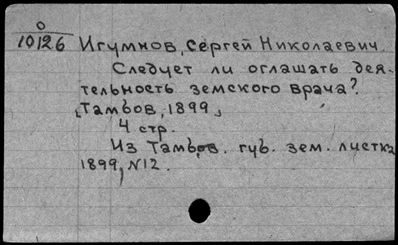 0
10126 Игумнов, Сергей Николаевич
Следует ли оглашать дея-
тельность земского врача?
[Тамбов, 1899]
4 стр.
Из Тамбов. губ. зем. листка
1899, N12.